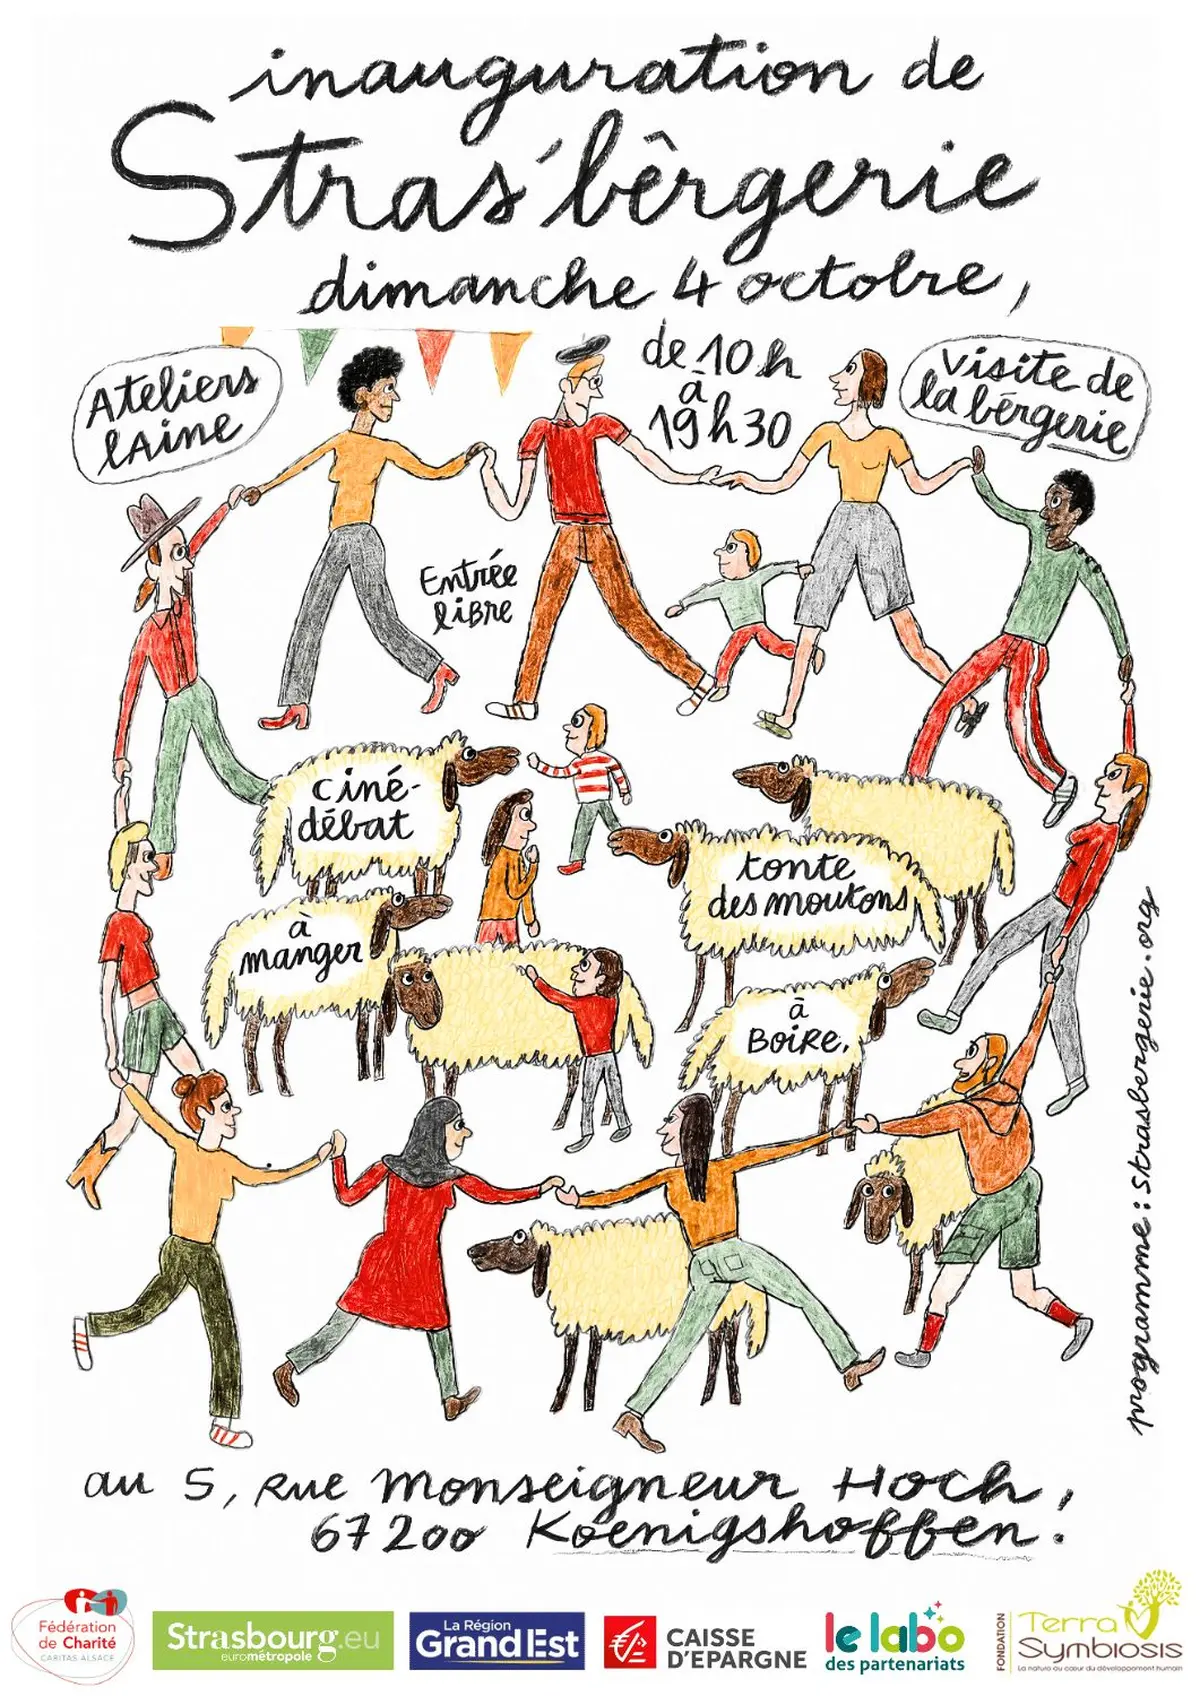 inauguration de
Stras'bêrgerie
dimanche 4 octobre,
de 10h
à
19h30
Ateliers
lAine
Visite de
la bêrgerie
Entrée
liBre
ciné-
débat
tonte
des moutons
à
manger
à
BOiRE.
programme : Strasbergerie.org
au 5, Rue Monseigneur Hoch,
67200 Koenigshoffen.
Fédération
de Charité
CARITAS ALSACE
Strasbourg.eu
eurométropole
La Région
GrandEst
CAISSE
D'EPARGNE
le labo
des partenariats
FONDATION
Terra
Symbiosis
La nature au cœur du développement humain